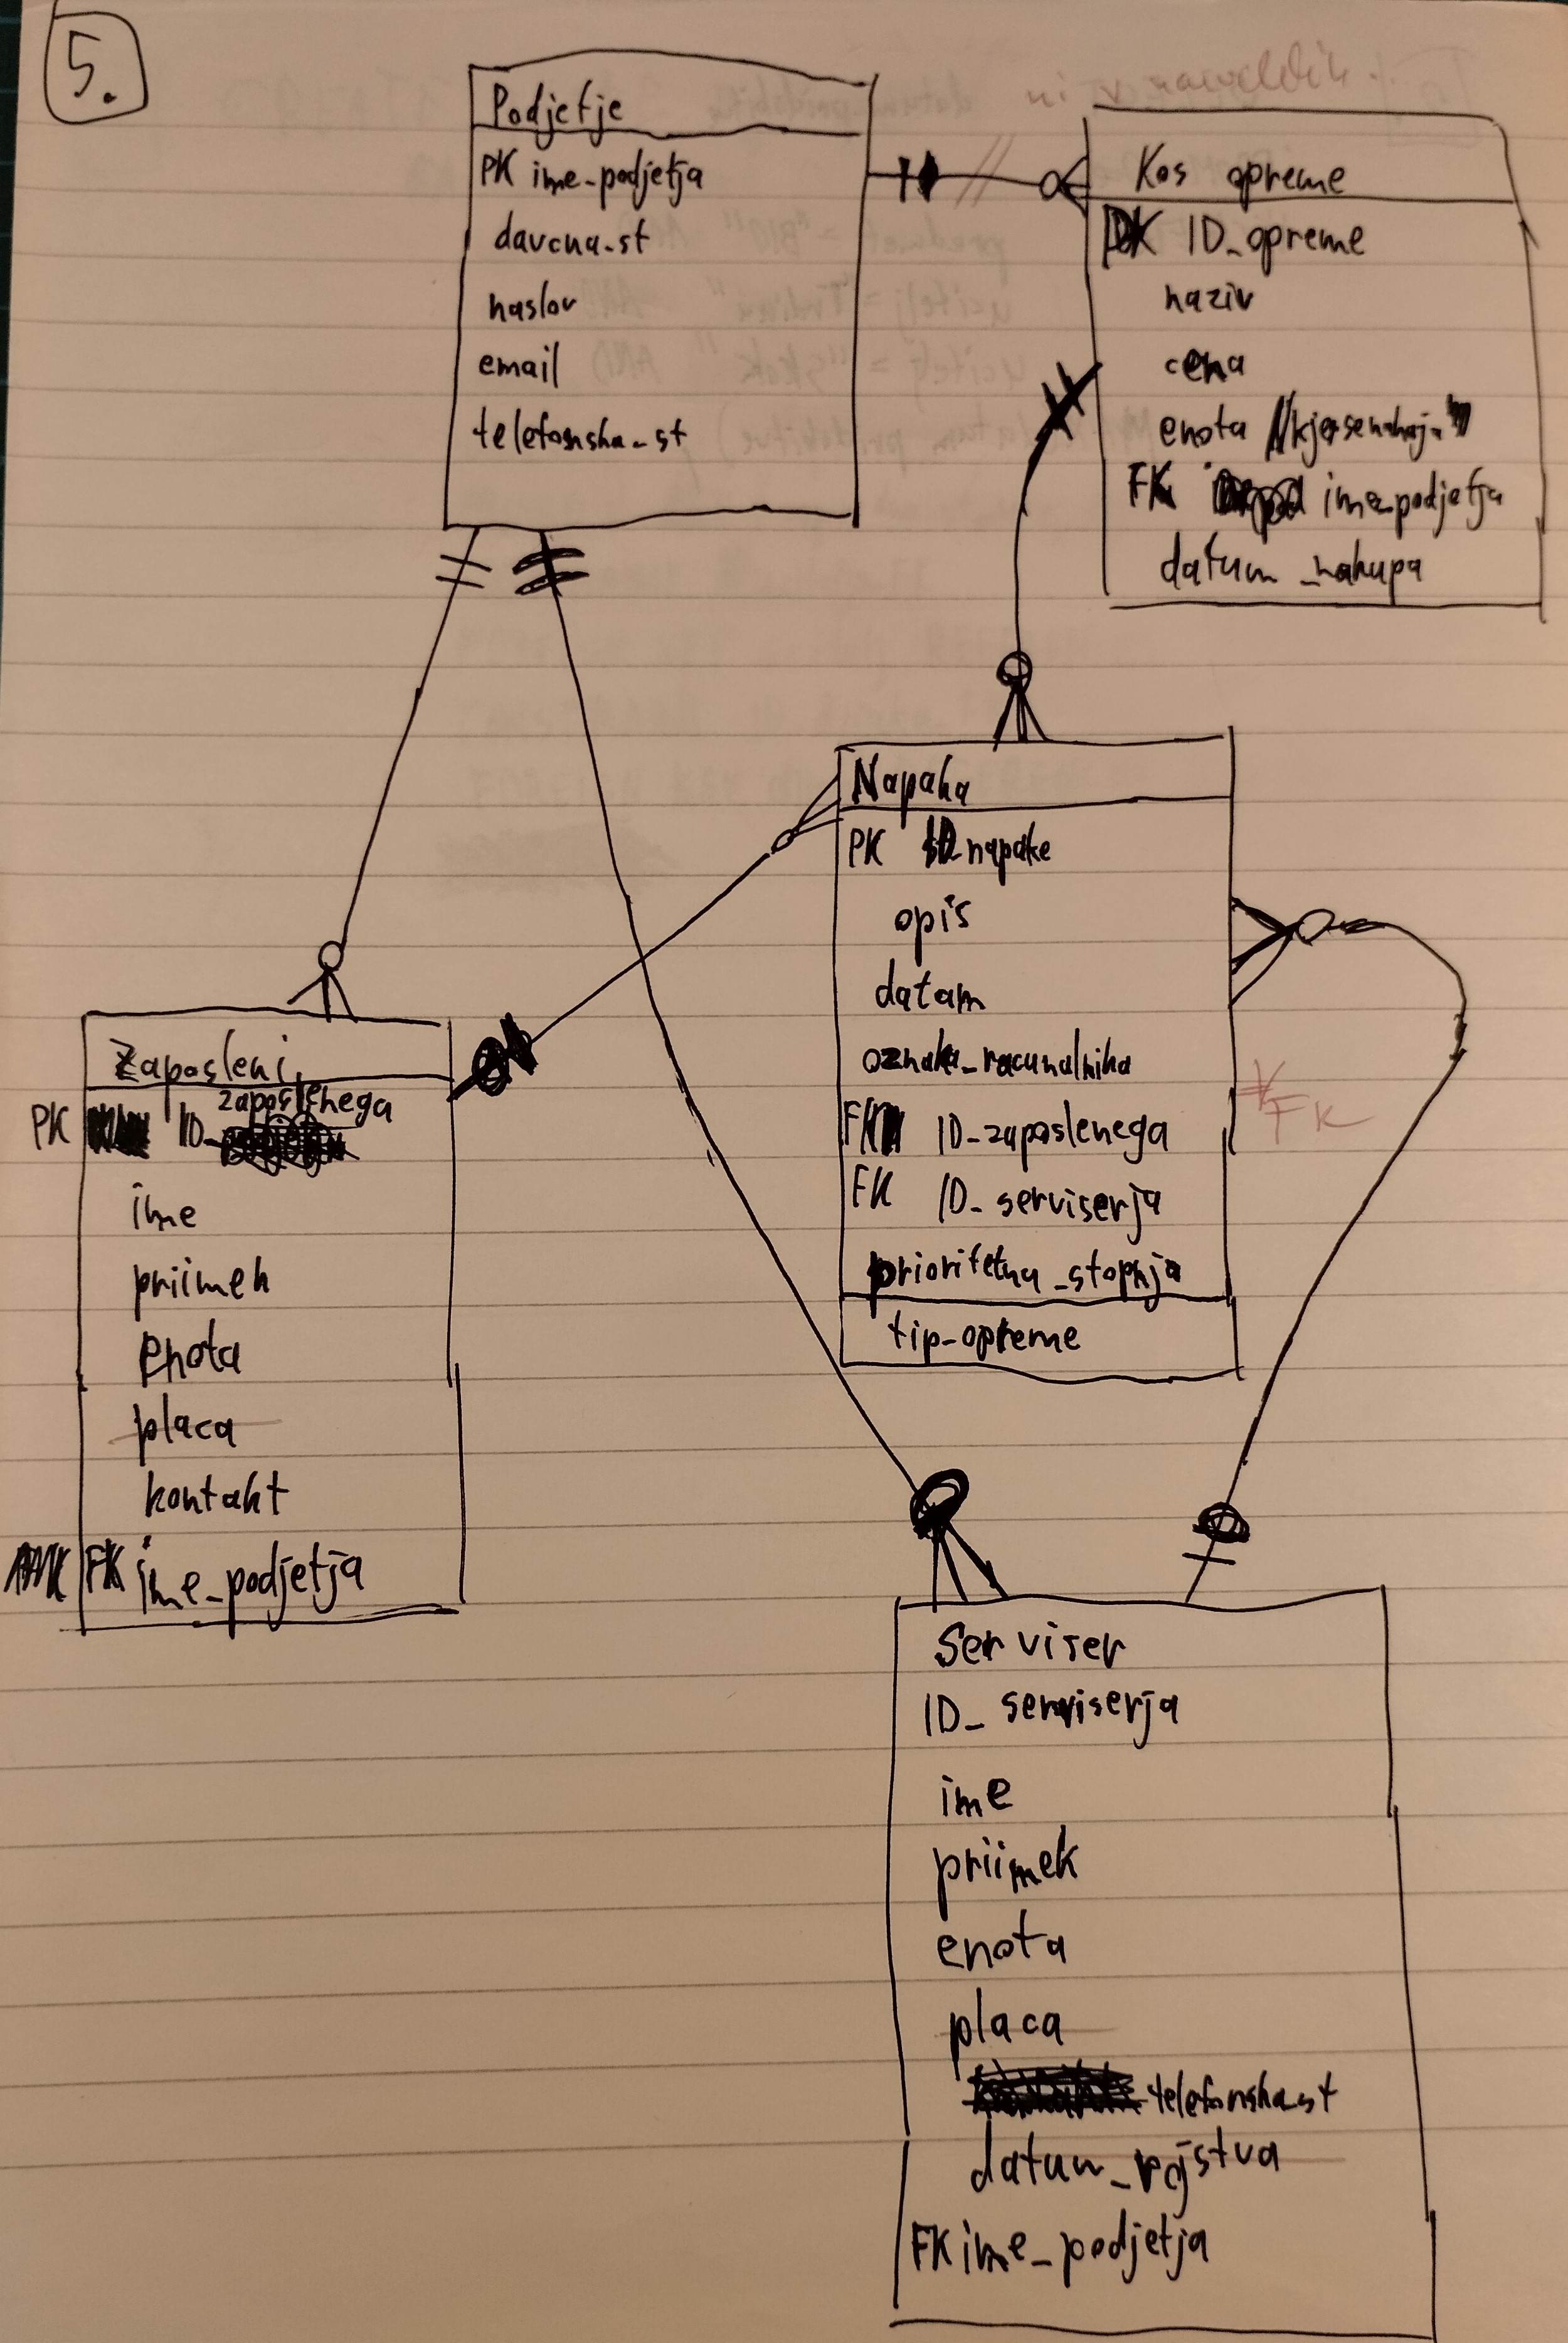 5.
Podjetje
PK ime_podjetja
davcna_st
naslov
email
telefonska_st
ni v navodilih
Kos opreme
PK ID_opreme
naziv
cena
enota
FK ime_podjetja
datum_nakupa
Napaka
PK ID_napake
opis
datum
oznaka_racunalnika
FK
FK ID_zaposlenega
FK ID_serviserja
prioritetna_stopnja
tip_opreme
Zaposleni
PK ID_zaposlenega
ime
priimek
enota
placa
kontakt
FK ime_podjetja
Serviser
ID_serviserja
ime
priimek
enota
placa
telefonska_st
datum_rojstva
FK ime_podjetja